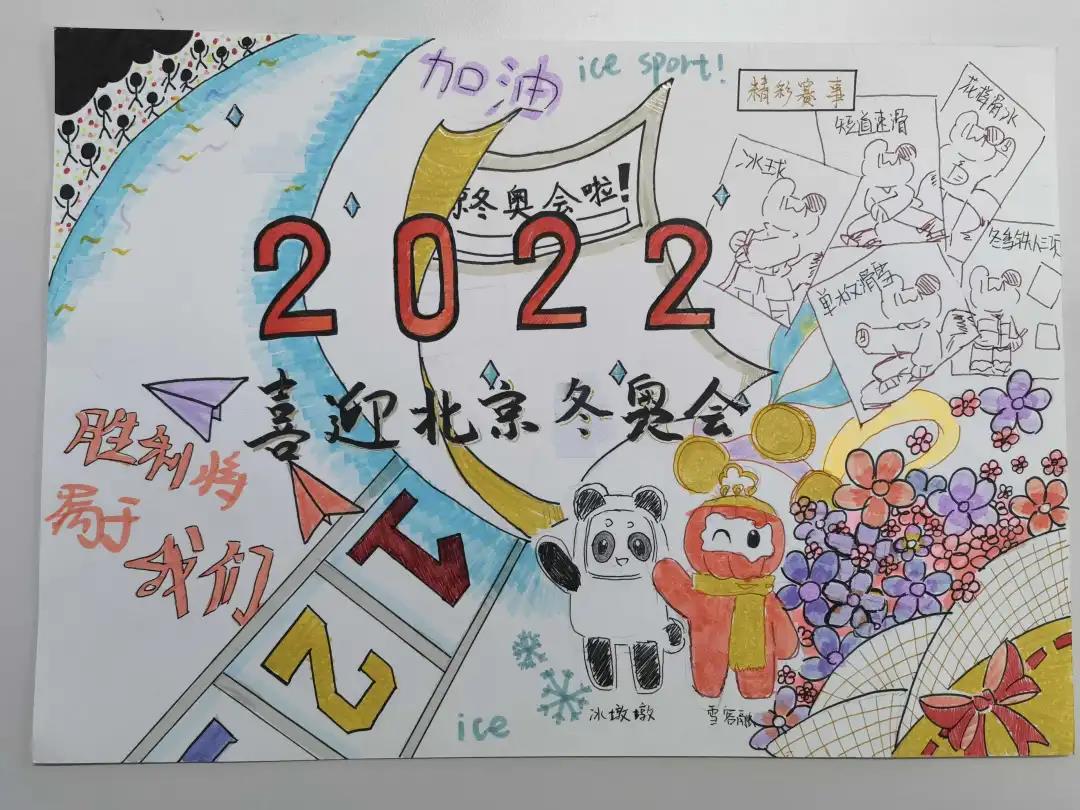 加油
ice sport!
精彩赛事
花样滑冰
短道速滑
冰球
京冬奥会啦!
2022
冬季铁人三项
单板滑雪
喜迎北京冬奥会
胜利将
属于
我们
1
2
ice
冰墩墩
雪容融